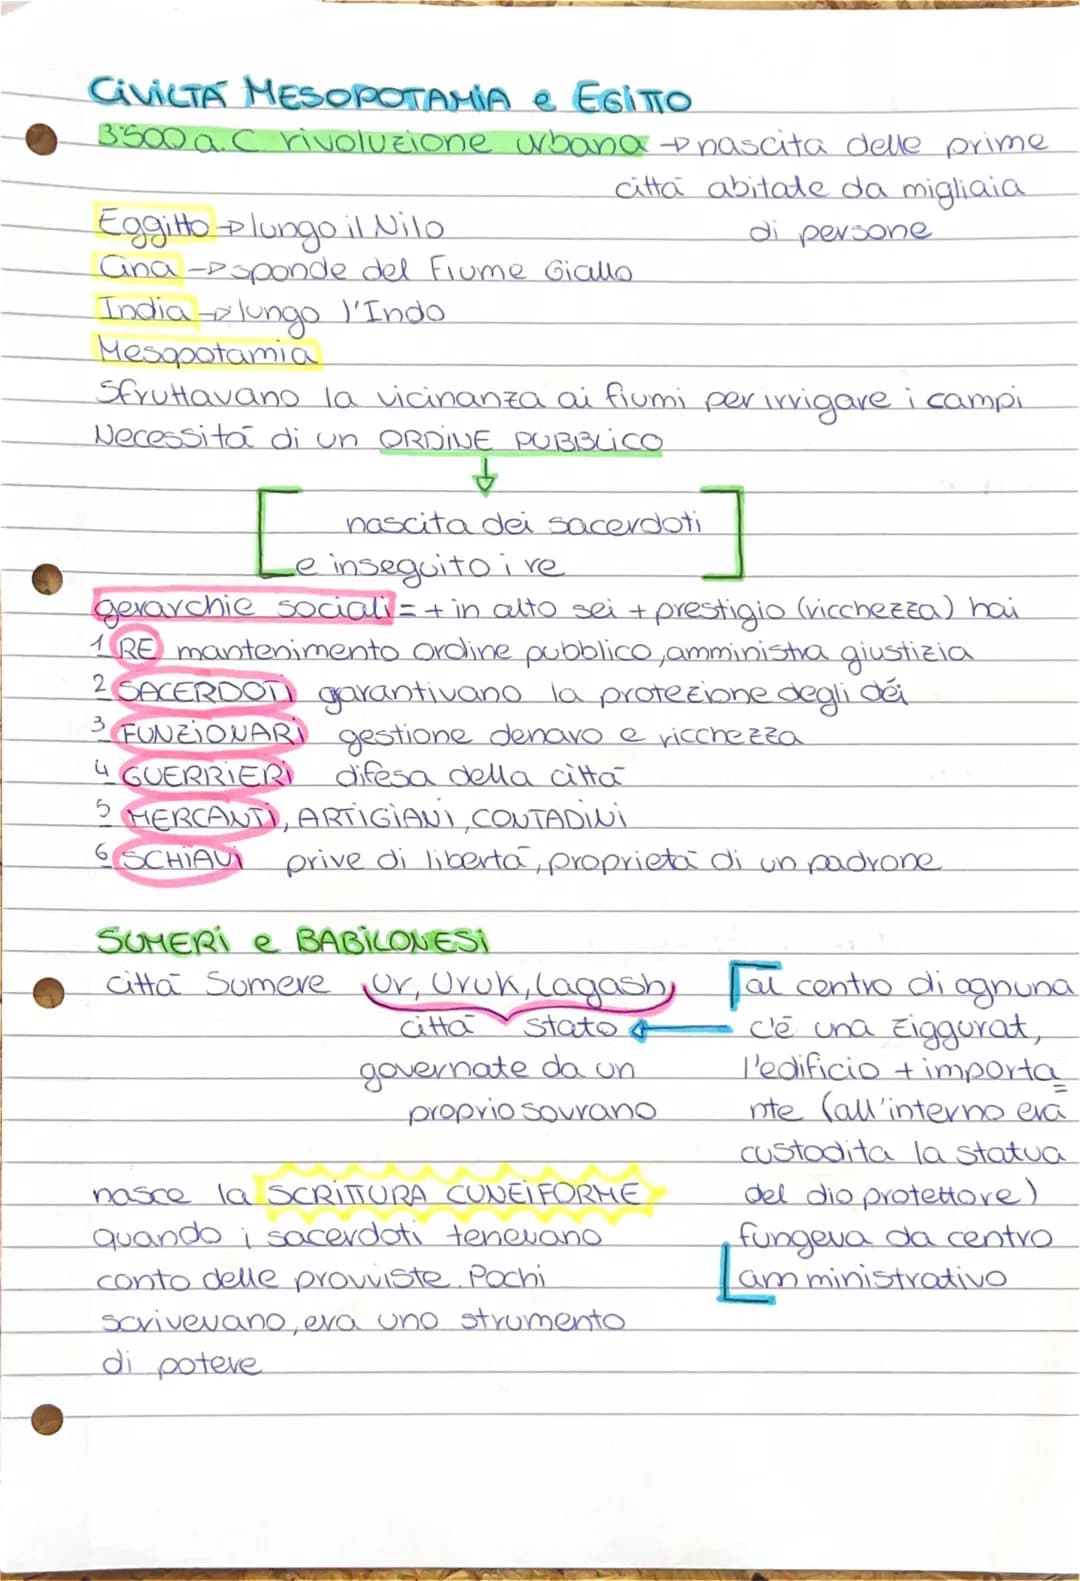 CIVILTÁ MESOPOTAMIA e EGITTO
3500 a.C rivoluzione urbana → nascita delle prime
cittá abitate da migliaia
di persone
Eggitto → lungo il Nilo
Cina → sponde del Fiume Giallo
India → lungo l'Indo
Mesopotamia
Sfruttavano la vicinanza ai fiumi per irrigare i campi
Necessitá di un ORDINE PUBBLICO
↓
nascita dei sacerdoti
e inseguito i re
gerarchie sociali = + in alto sei + prestigio (ricchezza) hai
1 RE mantenimento ordine pubblico, amministra giustizia
2 SACERDOTI garantivano la protezione degli déi
3 FUNZIONARI gestione denaro e ricchezza
4 GUERRIERI difesa della cittá
5 MERCANTI, ARTIGIANI, CONTADINI
6 SCHIAVI prive di libertá, proprietá di un padrone
SUMERI e BABILONESI
cittá Sumere Ur, Uruk, Lagash
cittá stato
governate da un
proprio sovrano
al centro di ognuna
c'é una ziggurat,
l'edificio + importa=
nte (all'interno era
custodita la statua
del dio protettore)
fungeva da centro
amministrativo
nasce la SCRITTURA CUNEIFORME
quando i sacerdoti tenevano
conto delle provviste. Pochi
scrivevano, era uno strumento
di potere